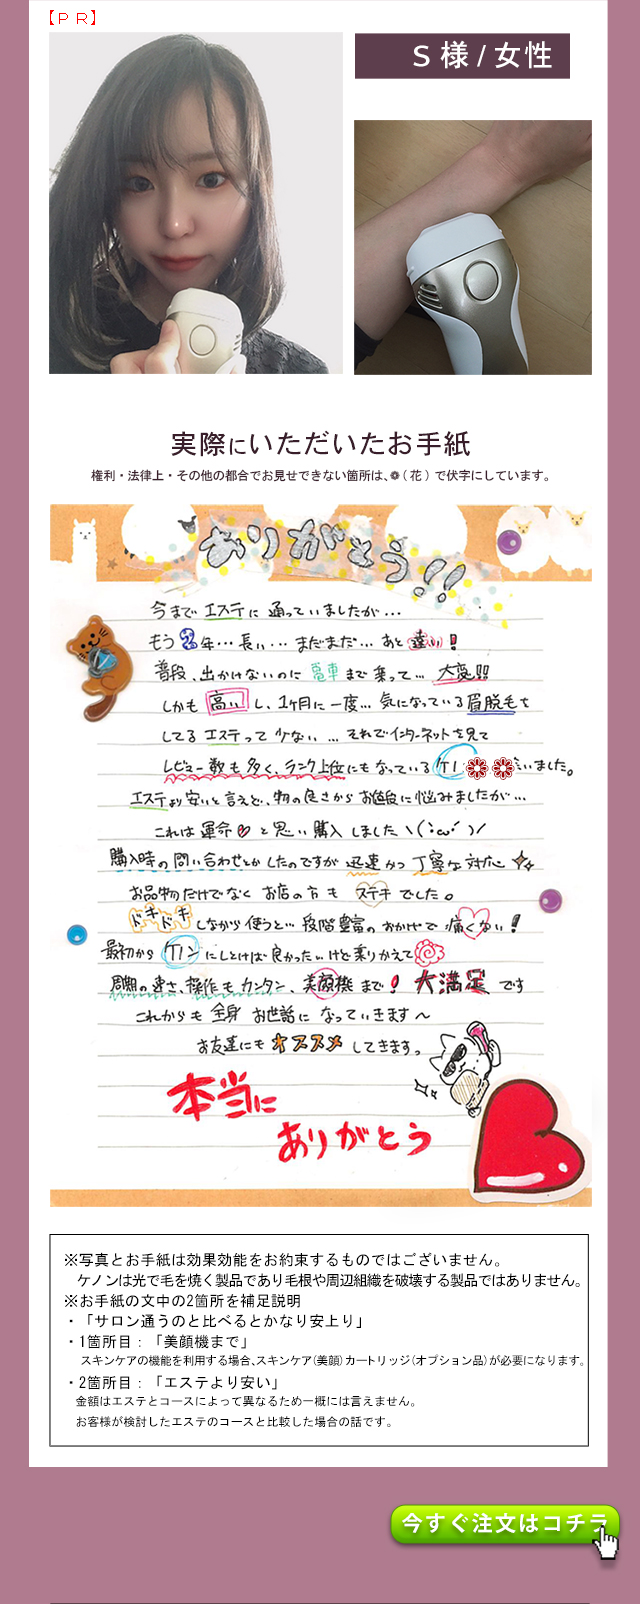 【ＰＲ】
Ｓ 様 / 女性
実際にいただいたお手紙
権利・法律上・その他の都合でお見せできない箇所は、❁（花）で伏字にしています。
ありがとう!!
今までエステに通っていましたが…
もう2年…長い…まだまだ…あと遠い!
普段、出かけないのに電車まで乗って…大変!!
しかも高いし、1ヶ月に一度…気になっている眉脱毛を
してるエステって少ない…それでインターネットを見て
レビュー数も多く、ランク上位にもなっているケノ❁❁いました。
エステより安いと言えど、物の良さからお値段に悩みましたが…
これは運命♡と思い購入しました＼(･ω･)／
購入時の問い合わせとかしたのですが迅速かつ丁寧な対応
お品物だけでなくお店の方もステキでした。
ドキドキしながら使うと…段階豊富のおかげで痛くない!
最初からケノンにしとけば良かった…けど乗りかえて
周期の速さ、操作もカンタン、美顔機まで!大満足です
これからも全身お世話になっていきます〜
お友達にもオススメしてきます。
本当に
ありがとう
※写真とお手紙は効果効能をお約束するものではございません。
ケノンは光で毛を焼く製品であり毛根や周辺組織を破壊する製品ではありません。
※お手紙の文中の2箇所を補足説明
・「サロン通うのと比べるとかなり安上り」
・1箇所目：「美顔機まで」
スキンケアの機能を利用する場合、スキンケア(美顔)カートリッジ(オプション品)が必要になります。
・2箇所目：「エステより安い」
金額はエステとコースによって異なるため一概には言えません。
お客様が検討したエステのコースと比較した場合の話です。
今すぐ注文はコチラ